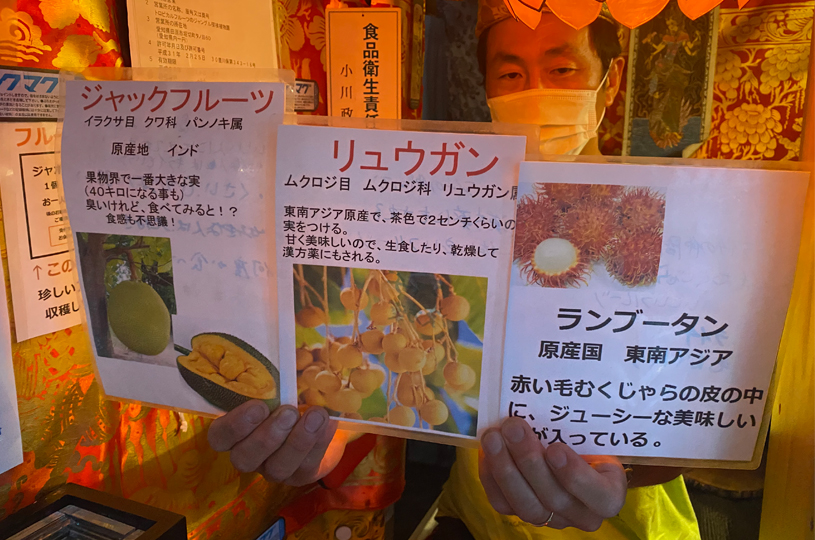 ジャックフルーツ
イラクサ目 クワ科 パンノキ属
原産地 インド
果物界で一番大きな実
(40キロになる事も)
臭いけれど、食べてみると！？
食感も不思議！
リュウガン
ムクロジ目 ムクロジ科 リュウガン属
東南アジア原産で、茶色で2センチくらいの
実をつける。
甘く美味しいので、生食したり、乾燥して
漢方薬にもされる。
ランブータン
原産国 東南アジア
赤い毛むくじゃらの皮の中
に、ジューシーな美味しい
が入っている。
食品衛生責任
小川 政
クマク
フル
ジャ
1個
お一
↑この
珍しい
収穫し